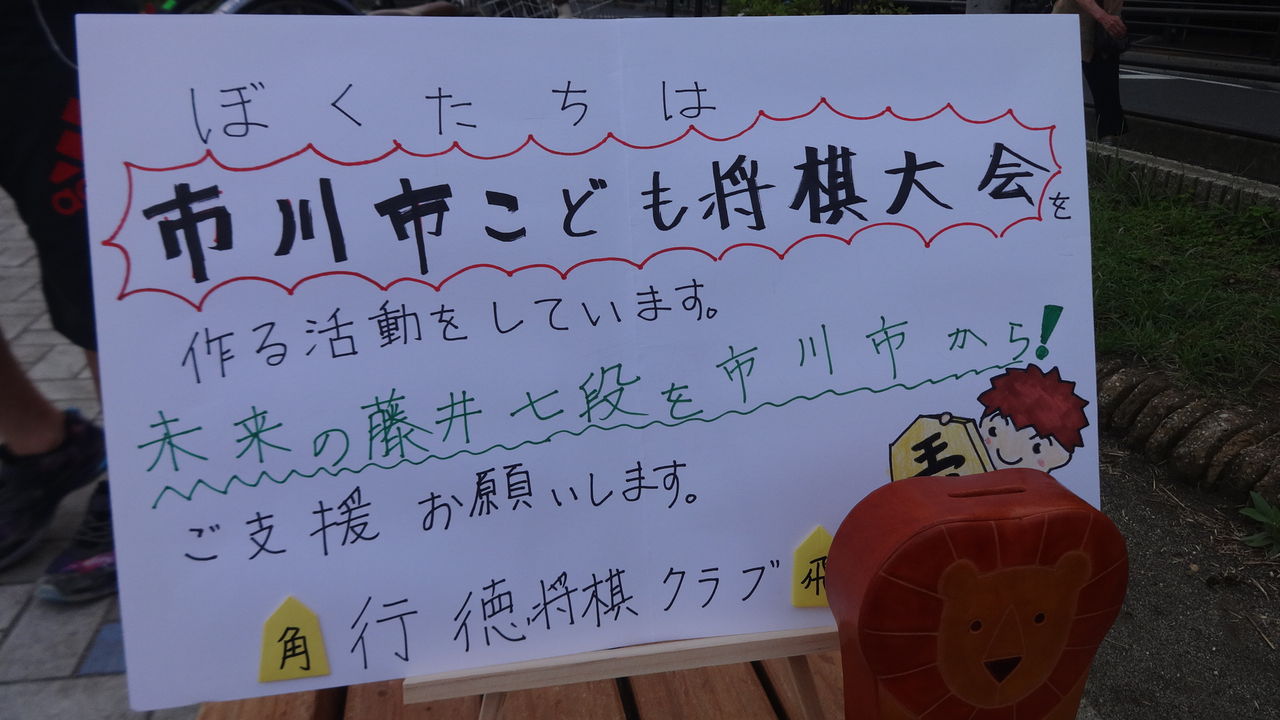 ぼくたちは
市川市こども将棋大会を
作る活動をしています。
未来の藤井七段を市川市から!
ご支援お願いします。
行徳将棋クラブ
角
飛